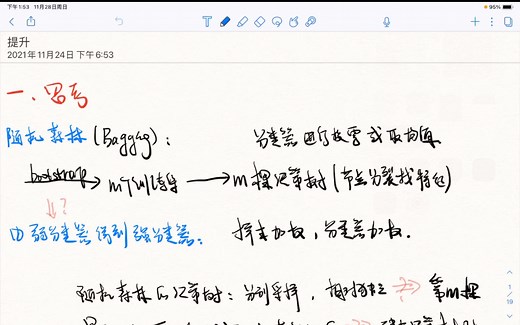 下午1:53 11月28日周日
95%
提升
2021年11月24日 下午6:53
一、思考
随机森林(Bagging): 分类器进行投票或取均值
bootstrap m个训练集 m棵决策树(节点分裂找特征)
?
由弱分类器得到强分类器: 样本加权,分类器加权.
随机森林的决策树:分别采样,相对独立 ? 第m棵
1
19